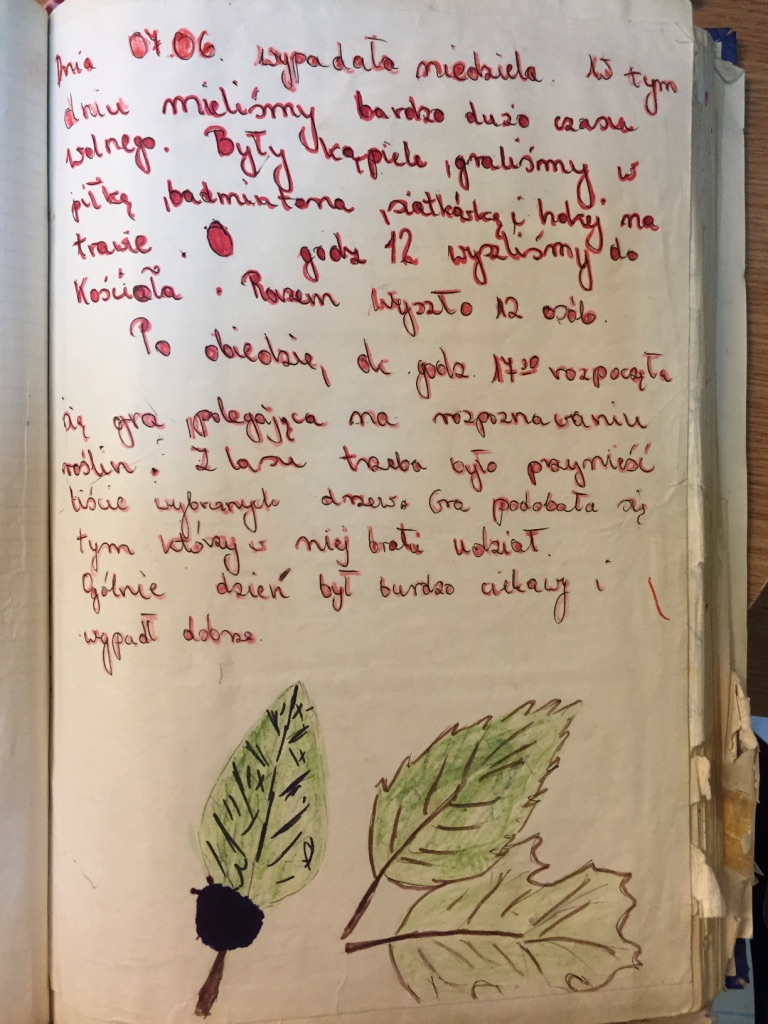 Dnia 07.06. wypadała niedziela. W tym
dniu mieliśmy bardzo dużo czasu
wolnego. Były kąpiele, graliśmy w
piłkę, badmintona, siatkówkę i hokej na
trawie. O godz 12 wyszliśmy do
Kościoła. Razem wyszło 12 osób.
Po obiedzie, ok. godz. 17³⁰ rozpoczęła
się gra, polegająca na rozpoznawaniu
roślin. Z lasu trzeba było przynieść
liście wybranych drzew. Gra podobała się
tym którzy w niej brali udział.
Ogólnie dzień był bardzo ciekawy i
wypadł dobrze.